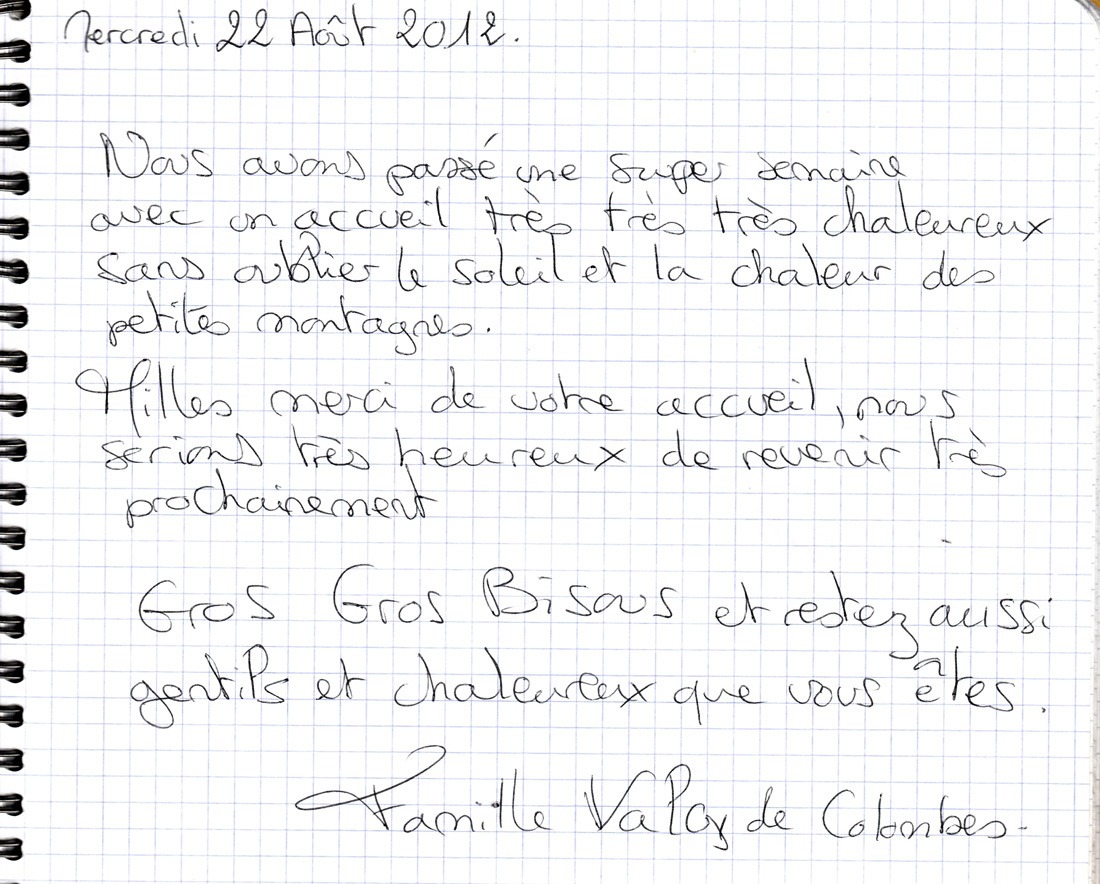 Mercredi 22 Août 2012.
Nous avons passé une super semaine
avec un accueil très très très chaleureux
sans oublier le soleil et la chaleur des
petites montagnes.
Milles merci de votre accueil, nous
serions très heureux de revenir très
prochainement
Gros Gros Bisous et restez aussi
gentils et chaleureux que vous êtes.
Famille Valoy de Colombes.